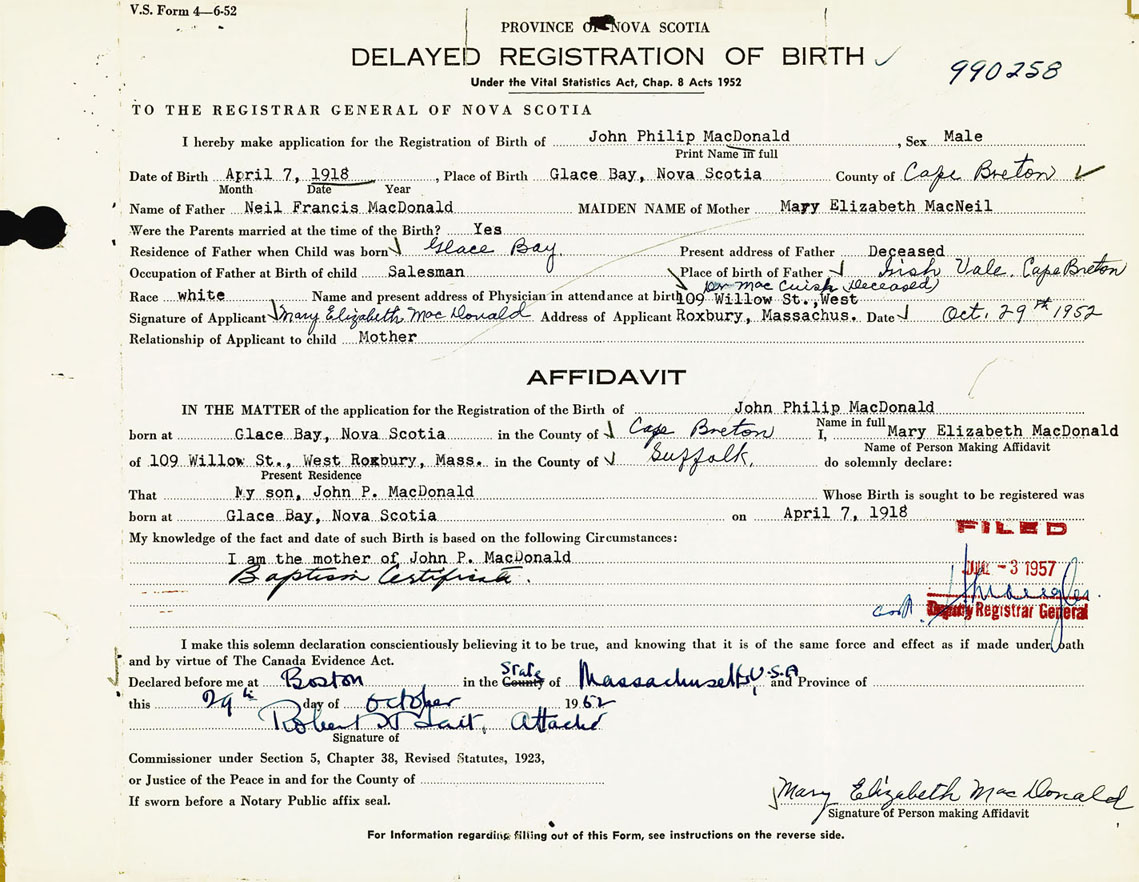 V.S. Form 4—6-52
PROVINCE OF NOVA SCOTIA
DELAYED REGISTRATION OF BIRTH
990258
Under the Vital Statistics Act, Chap. 8 Acts 1952
TO THE REGISTRAR GENERAL OF NOVA SCOTIA
I hereby make application for the Registration of Birth of John Philip MacDonald, Sex Male
Print Name in full
Date of Birth April 7, 1918, Place of Birth Glace Bay, Nova Scotia County of Cape Breton
Month Date Year
Name of Father Neil Francis MacDonald MAIDEN NAME of Mother Mary Elizabeth MacNeil
Were the Parents married at the time of the Birth? Yes
Residence of Father when Child was born Glace Bay. Present address of Father Deceased
Occupation of Father at Birth of child Salesman Place of birth of Father Irish Vale. Cape Breton
Dr Mac Cuish (Deceased)
Race white Name and present address of Physician in attendance at birth 109 Willow St., West
Signature of Applicant Mary Elizabeth MacDonald Address of Applicant Roxbury, Massachus. Date Oct. 29th 1952
Relationship of Applicant to child Mother
AFFIDAVIT
IN THE MATTER of the application for the Registration of the Birth of John Philip MacDonald
Name in full
born at Glace Bay, Nova Scotia in the County of Cape Breton I, Mary Elizabeth MacDonald
Name of Person Making Affidavit
of 109 Willow St., West Roxbury, Mass. in the County of Suffolk, do solemnly declare:
Present Residence
That My son, John P. MacDonald Whose Birth is sought to be registered was
born at Glace Bay, Nova Scotia on April 7, 1918
My knowledge of the fact and date of such Birth is based on the following Circumstances:
FILED
I am the mother of John P. MacDonald
Baptism Certificate.
JUL -3 1957
Deputy Registrar General
I make this solemn declaration conscientiously believing it to be true, and knowing that it is of the same force and effect as if made under oath
and by virtue of The Canada Evidence Act.
Declared before me at Boston in the County State of Massachusetts, U.S.A and Province of
this 29th day of October 1952
Robert Tait, Attaché
Signature of
Commissioner under Section 5, Chapter 38, Revised Statutes, 1923,
or Justice of the Peace in and for the County of
If sworn before a Notary Public affix seal.
Mary Elizabeth MacDonald
Signature of Person making Affidavit
For Information regarding filling out of this Form, see instructions on the reverse side.